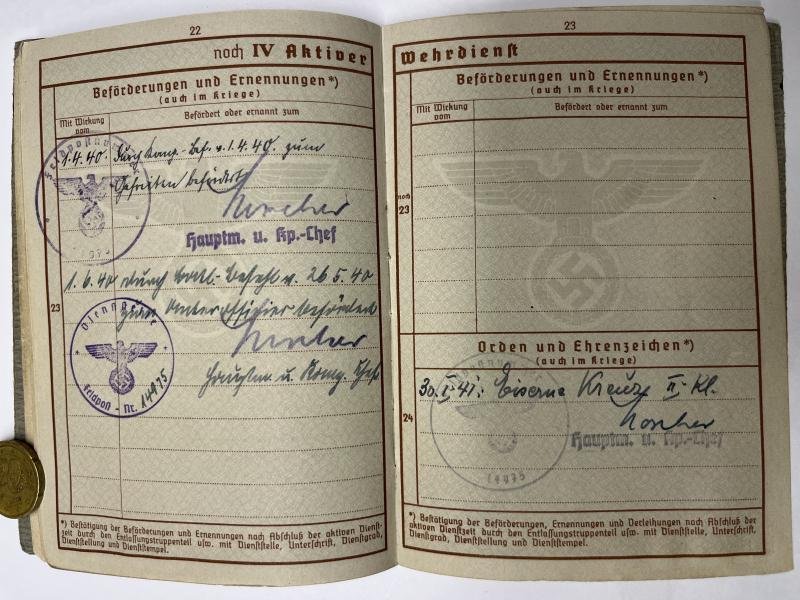 22
noch IV Aktiver
Beförderungen und Ernennungen*)
(auch im Kriege)
Mit Wirkung vom
Befördert oder ernannt zum
1.4.40. durch Komp.-Bef. v. 1.4.40. zum
Gefreiten befördert
Hauptm. u. Kp.-Chef
1.6.40 durch Batl.-Befehl v. 26.5.40
23
zum Unteroffizier befördert
Hauptm u. Komp. Chef
Dienststelle
Feldpost-Nr. 14975
*) Bestätigung der Beförderungen und Ernennungen nach Abschluß der aktiven Dienst-
zeit durch den Entlassungstruppenteil usw. mit Dienststelle, Unterschrift, Dienstgrad,
Dienststellung und Dienststempel.
23
Wehrdienst
Beförderungen und Ernennungen*)
(auch im Kriege)
Mit Wirkung vom
Befördert oder ernannt zum
noch
23
Orden und Ehrenzeichen*)
(auch im Kriege)
30.I.41: Eiserne Kreuz II. Kl.
24
Hauptm. u. Kp.-Chef
14975
*) Bestätigung der Beförderungen, Ernennungen und Verleihungen nach Abschluß der
aktiven Dienstzeit durch den Entlassungstruppenteil usw. mit Dienststelle, Unterschrift,
Dienstgrad, Dienststellung und Dienststempel.